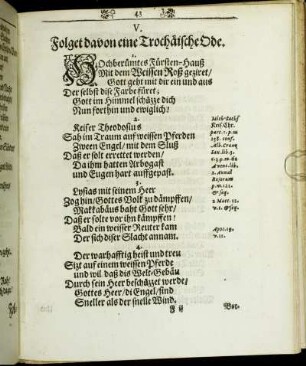 43
V.
Folget davon eine Trochäische Ode.
1.
HOchberühmtes Fürsten-Hauß
Mit dem Weissen Roß gezieret/
Gott geht mit dir ein und aus
Der selbst dise Farbe füret;
Gott im Himmel schütze dich
Nun forthin und ewiglich!
2.
Keiser Theodosius
Sah im Traum auf weissen Pferden
Zween Engel/ mit dem Sluß
Daß er solt errettet werden/
Da ihm hatten Arbogast
und Eugen hart auffgepast.
3.
Lysias mit seinem Heer
Zog hin/ Gottes Volk zu dämpffen/
Makkabäus baht Gott sehr/
Daß er solte vor ihn kämpffen:
Bald ein weisser Reuter kam
Der sich diser Slacht annam.
2 Macc. 11.
4.
Der warhafftig heist und treu
Sizt auf einem weissen Pferde
und wil daß die Welt-Gebäu
Durch sein Heer beschützet werde;
Gottes Heer/ di Engel/ sind
Sneller als der snelle Wind.
Apoc. 19.
v. 11.
F ij